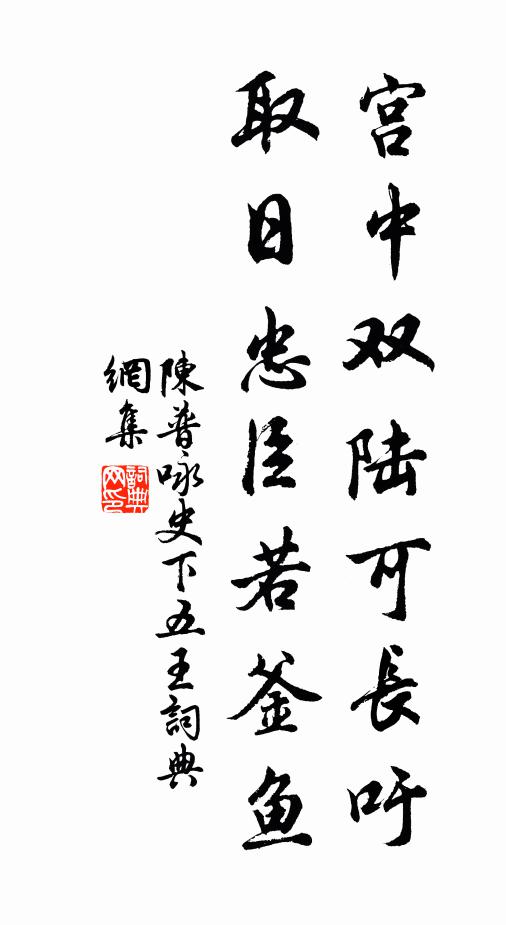 宫中双陆可長吁
取日忠臣若釜鱼
陳普咏史下五王詞典
網集
詞典網印